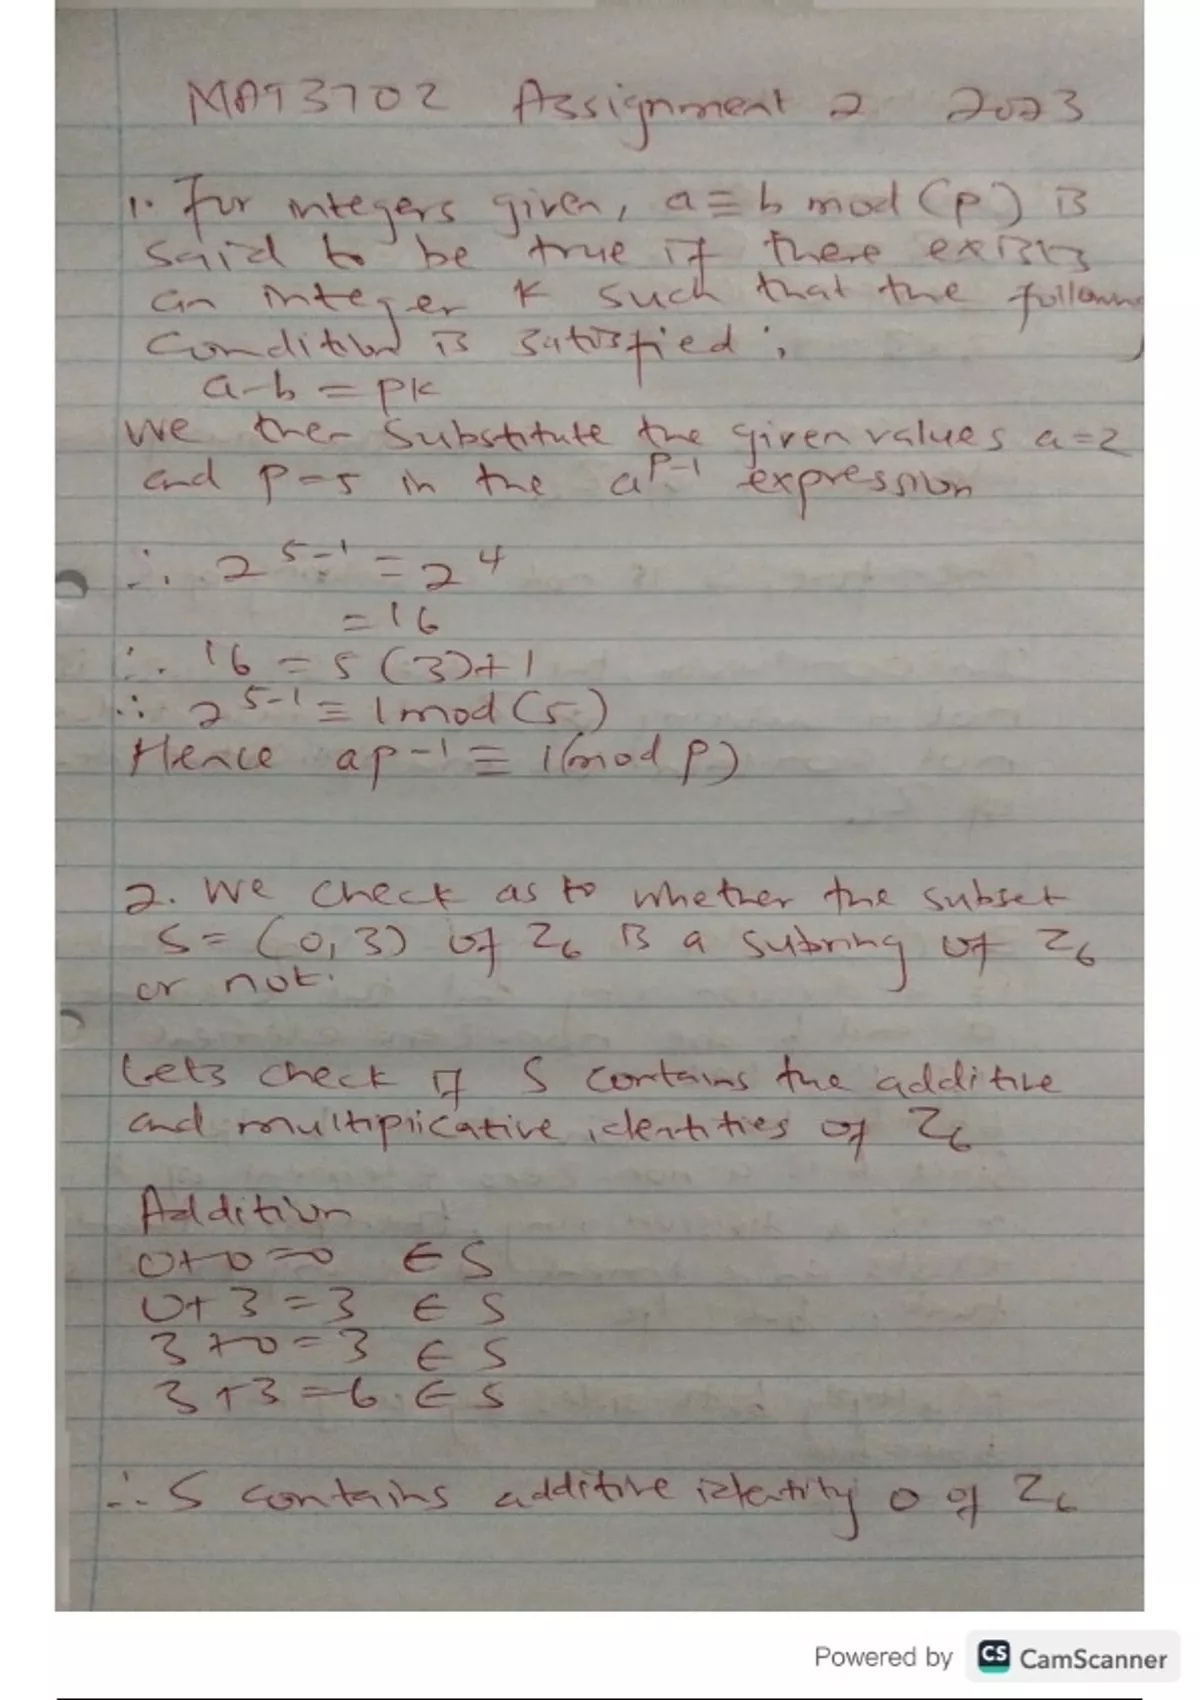 MAT3702 Assignment 2 2023
1. For integers given, a ≡ b mod (p) is
said to be true if there exists
an integer K such that the following
condition is satisfied;
a-b = pk
We then substitute the given values a=2
and p=5 in the a^p-1 expression
∴ 2^5-1 = 2^4
= 16
∴ 16 = 5(3)+1
∴ 2^5-1 ≡ 1 mod (5)
Hence ap-1 ≡ 1(mod p)
2. We check as to whether the subset
S = (0,3) of Z6 is a subring of Z6
or not.
Lets check if S contains the additive
and multiplicative identities of Z6
Addition
0+0=0 ∈ S
0+3=3 ∈ S
3+0=3 ∈ S
3+3=6 ∈ S
∴ S contains additive identity 0 of Z6
Powered by CS CamScanner